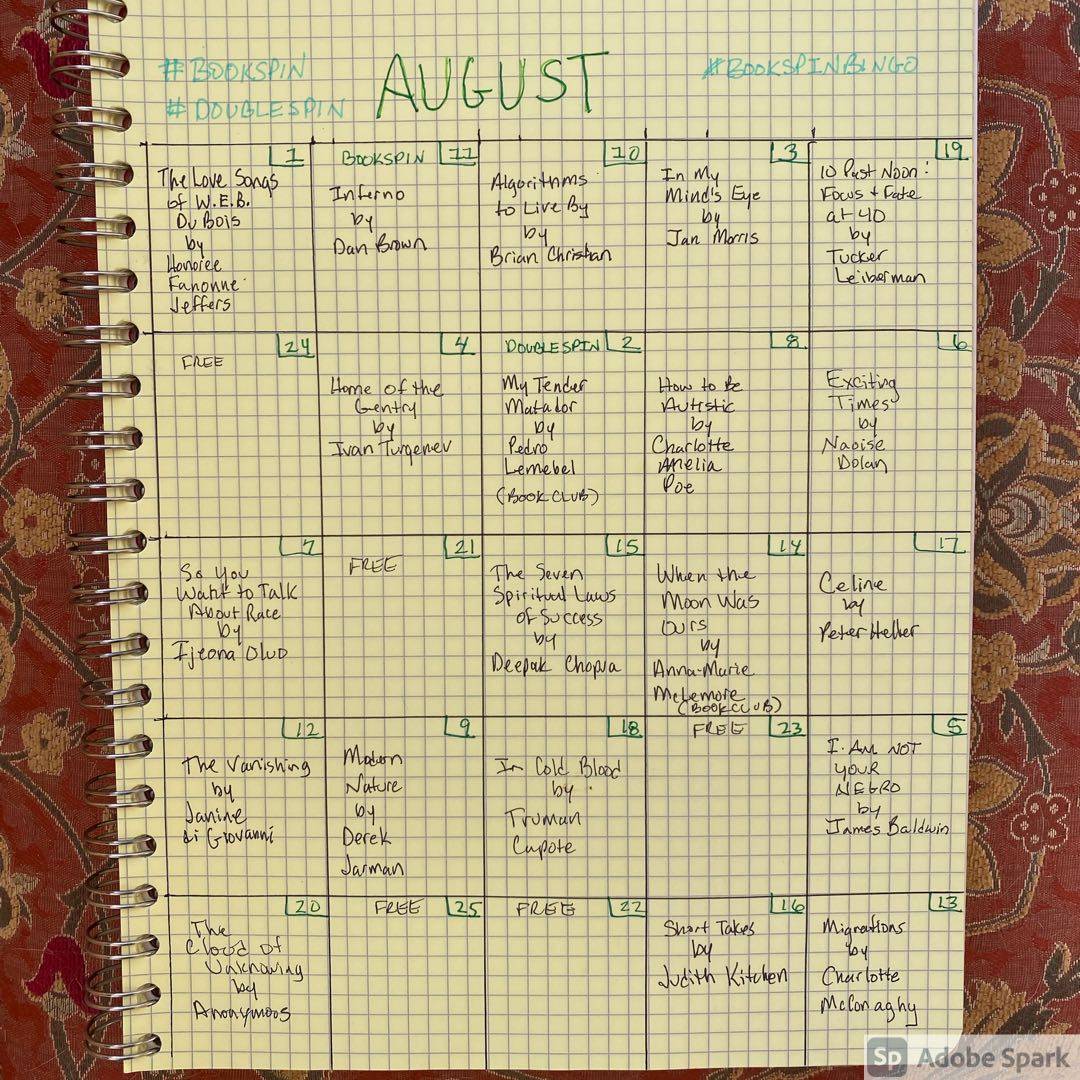 #BOOKSPIN
#DOUBLESPIN
AUGUST
#BOOKSPINBINGO
1
The Love Songs
of W.E.B.
Du Bois
by
Honoree
Fanonne
Jeffers
BOOKSPIN 11
Inferno
by
Dan Brown
10
Algorithms
to Live By
by
Brian Christian
3
In My
Mind's Eye
by
Jan Morris
19
10 Past Noon:
Focus + Fate
at 40
by
Tucker
Leiberman
24
FREE
4
Home of the
Gentry
by
Ivan Turgenev
DOUBLESPIN 2
My Tender
Matador
by
Pedro
Lemebel
(BOOK CLUB)
8
How to Be
Autistic
by
Charlotte
Amelia
Poe
6
Exciting
Times
by
Naoise
Dolan
7
So You
Want to Talk
About Race
by
Ijeona Oluo
21
FREE
15
The Seven
Spiritual Laws
of Success
by
Deepak Chopra
14
When the
Moon Was
Ours
by
Anna-Marie
McLemore
(BOOK CLUB)
17
Celine
by
Peter Heller
12
The Vanishing
by
Janine
di Giovanni
9
Modern
Nature
by
Derek
Jarman
18
In Cold Blood
by
Truman
Capote
FREE 23
5
I AM NOT
YOUR
NEGRO
by
James Baldwin
20
The
Cloud of
Unknowing
by
Anonymous
FREE 25
FREE 22
16
Short Takes
by
Judith Kitchen
13
Migrations
by
Charlotte
McConaghy
Sp Adobe Spark